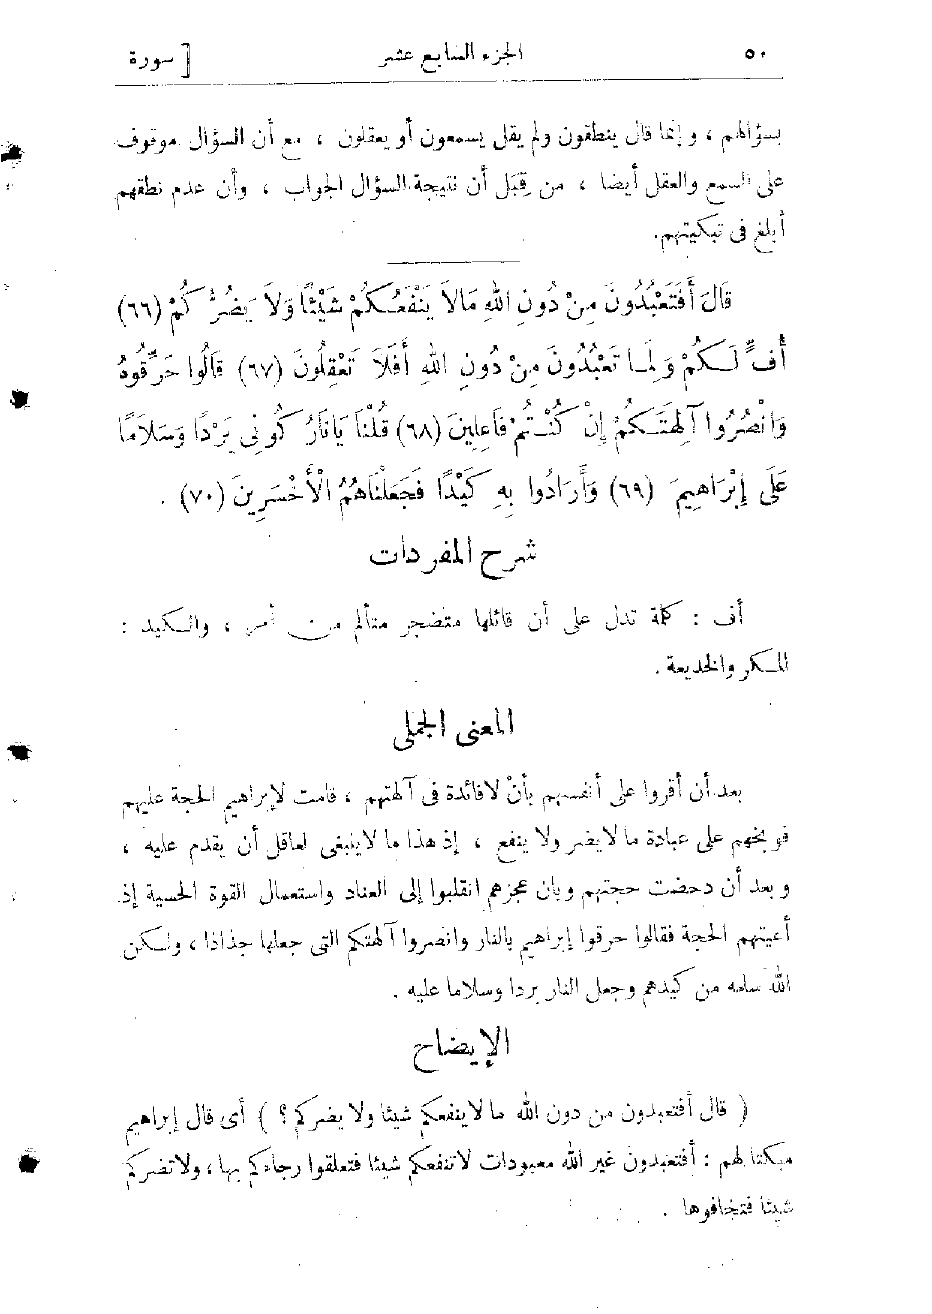 ٥٠ الجزء السابع عشر [ سورة
بسؤالهم ، وإنما قال ينطقون ولم يقل يسمعون أو يعقلون ، مع أن السؤال موقوف
على السمع والعقل أيضا ، من قِبَل أن نتيجة السؤال الجواب ، وأن عدم نطقهم
أبلغ فى تبكيتهم.
قَالَ أَفَتَعْبُدُونَ مِنْ دُونِ اللهِ مَالاَ يَنْفَعُكُمْ شَيْئًا وَلاَ يَضُرُّكُمْ (٦٦)
أُفٍّ لَكُمْ وَلِمَا تَعْبُدُونَ مِنْ دُونِ اللهِ أَفَلاَ تَعْقِلُونَ (٦٧) قَالُوا حَرِّقُوهُ
وَانْصُرُوا آلِهَتَكُمْ إِنْ كُنْتُمْ فَاعِلِينَ (٦٨) قُلْنَا يَانَارُ كُونِى بَرْدًا وَسَلاَمًا
عَلَى إِبْرَاهِيمَ (٦٩) وَأَرَادُوا بِهِ كَيْدًا فَجَعَلْنَاهُمُ الْأَخْسَرِينَ (٧٠) .
شرح المفردات
أف : كلمة تدل على أن قائلها متضجر متألم من أمر ، والكيد :
المكر والخديعة .
المعنى الجملى
بعد أن أقروا على أنفسهم بأنْ لافائدة فى آلهتهم ، قامت لإبراهيم الحجة عليهم
فوبخهم على عبادة ما لا يضر ولا ينفع ، إذ هذا ما لا ينبغى لعاقل أن يقدم عليه ،
وبعد أن دحضت حجتهم وبان عجزهم انقلبوا إلى العناد واستعمال القوة الحسية إذ
أعيتهم الحجة فقالوا حرقوا إبراهيم بالنار وانصروا آلهتكم التى جعلها جذاذا ، ولكن
الله سلمه من كيدهم وجعل النار بردا وسلاما عليه .
الإيضاح
( قال أفتعبدون من دون الله ما لا ينفعكم شيئا ولا يضركم ؟ ) أى قال إبراهيم
مبكتا لهم : أفتعبدون غير الله معبودات لا تنفعكم شيئا فتعلقوا رجاءكم بها ، ولا تضركم
شيئا فتخافوها .